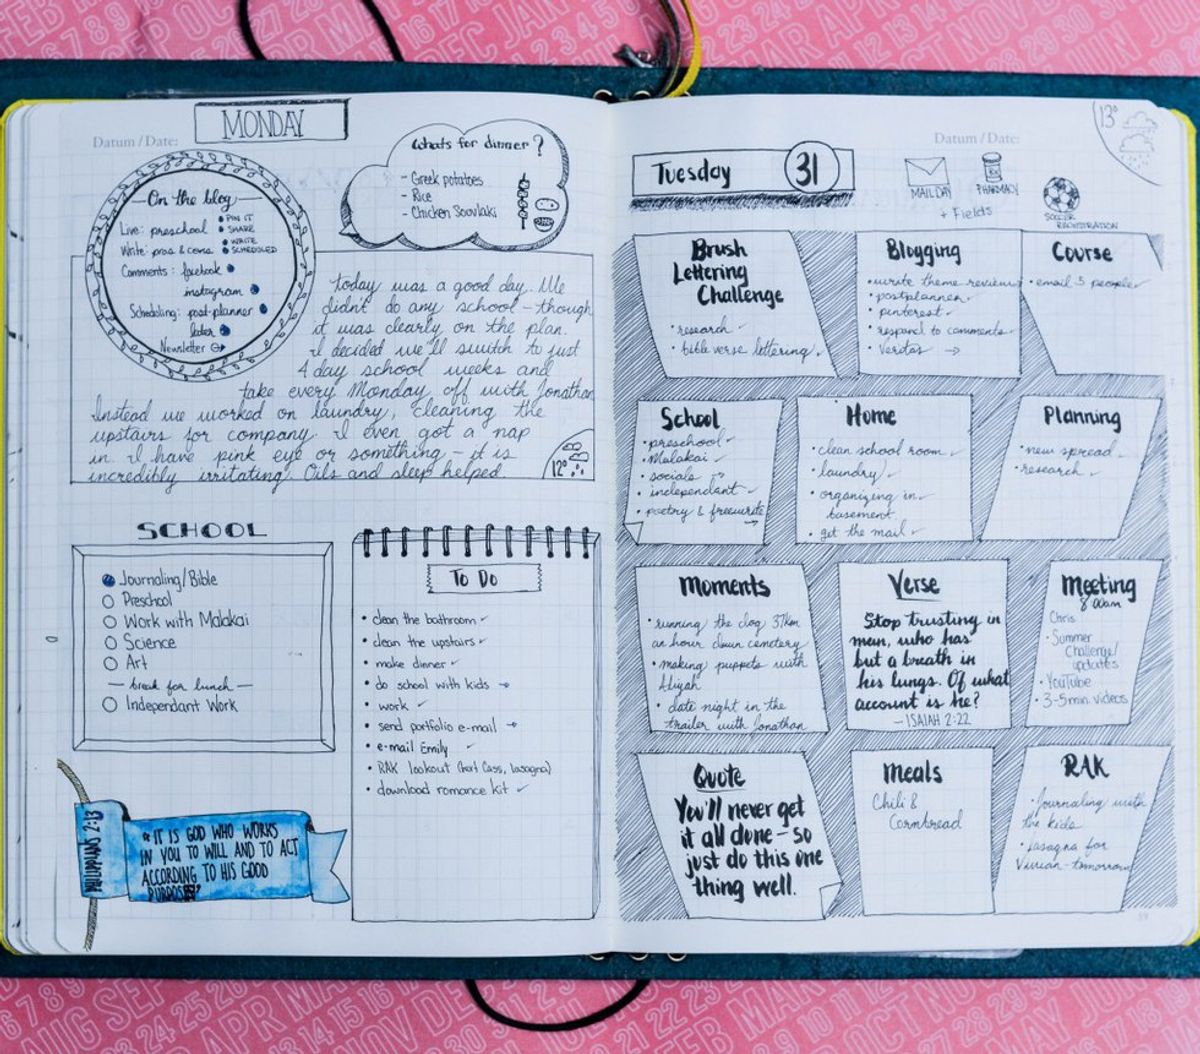 Datum / Date:
MONDAY
On the blog
Live: preschool
PIN IT
SHARE
Write: pros & cons
WRITE
SCHEDULED
Comments: facebook
instagram
Scheduling: post-planner
later
Newsletter
Whats for dinner?
- Greek potatoes
- Rice
- Chicken Souvlaki
today was a good day. We
didn't do any school - though
it was clearly on the plan.
I decided we'll switch to just
4 day school weeks and
take every Monday off with Jonathan
Instead we worked on laundry, cleaning the
upstairs for company. I even got a nap
in. I have pink eye or something - it is
incredibly irritating. Oils and sleep helped
12°
SCHOOL
Journaling/Bible
Preschool
Work with Malakai
Science
Art
- break for lunch -
Independant Work
To Do
• clean the bathroom
• clean the upstairs
• make dinner
• do school with kids
• work
• send portfolio e-mail
• e-mail Emily
• RAK lookout (hart Cass, lasagna)
• download romance kit
PHILIPPIANS 2:13
"IT IS GOD WHO WORKS
IN YOU TO WILL AND TO ACT
ACCORDING TO HIS GOOD
PURPOSE"
Datum / Date:
Tuesday 31
MAIL DAY
PHARMACY
+ Fields
SOCCER
REGISTRATION
13°
Brush
Lettering
Challenge
• research
• bible verse lettering
Blogging
• write theme reviews
• postplanner
• pinterest
• respond to comments
• veritas
Course
• email 5 people
School
• preschool
• Malakai
• socials
• independant
• poetry & freewrite
Home
• clean school room
• laundry
• organizing in
basement
• get the mail
Planning
• new spread
• research
Moments
• running the dog 37km
an hour down cemetery
• making puppets with
Aliyah
• date night in the
trailer with Jonathan
Verse
Stop trusting in
man, who has
but a breath in
his lungs. Of what
account is he?
- ISAIAH 2:22
Meeting
8:00am
Chris
• Summer
Challenge/
updates
• YouTube
• 3-5min videos
Quote
You'll never get
it all done - so
just do this one
thing well.
Meals
Chili &
Cornbread
RAK
• Journaling with
the kids
• lasagna for
Vivian - tomorrow